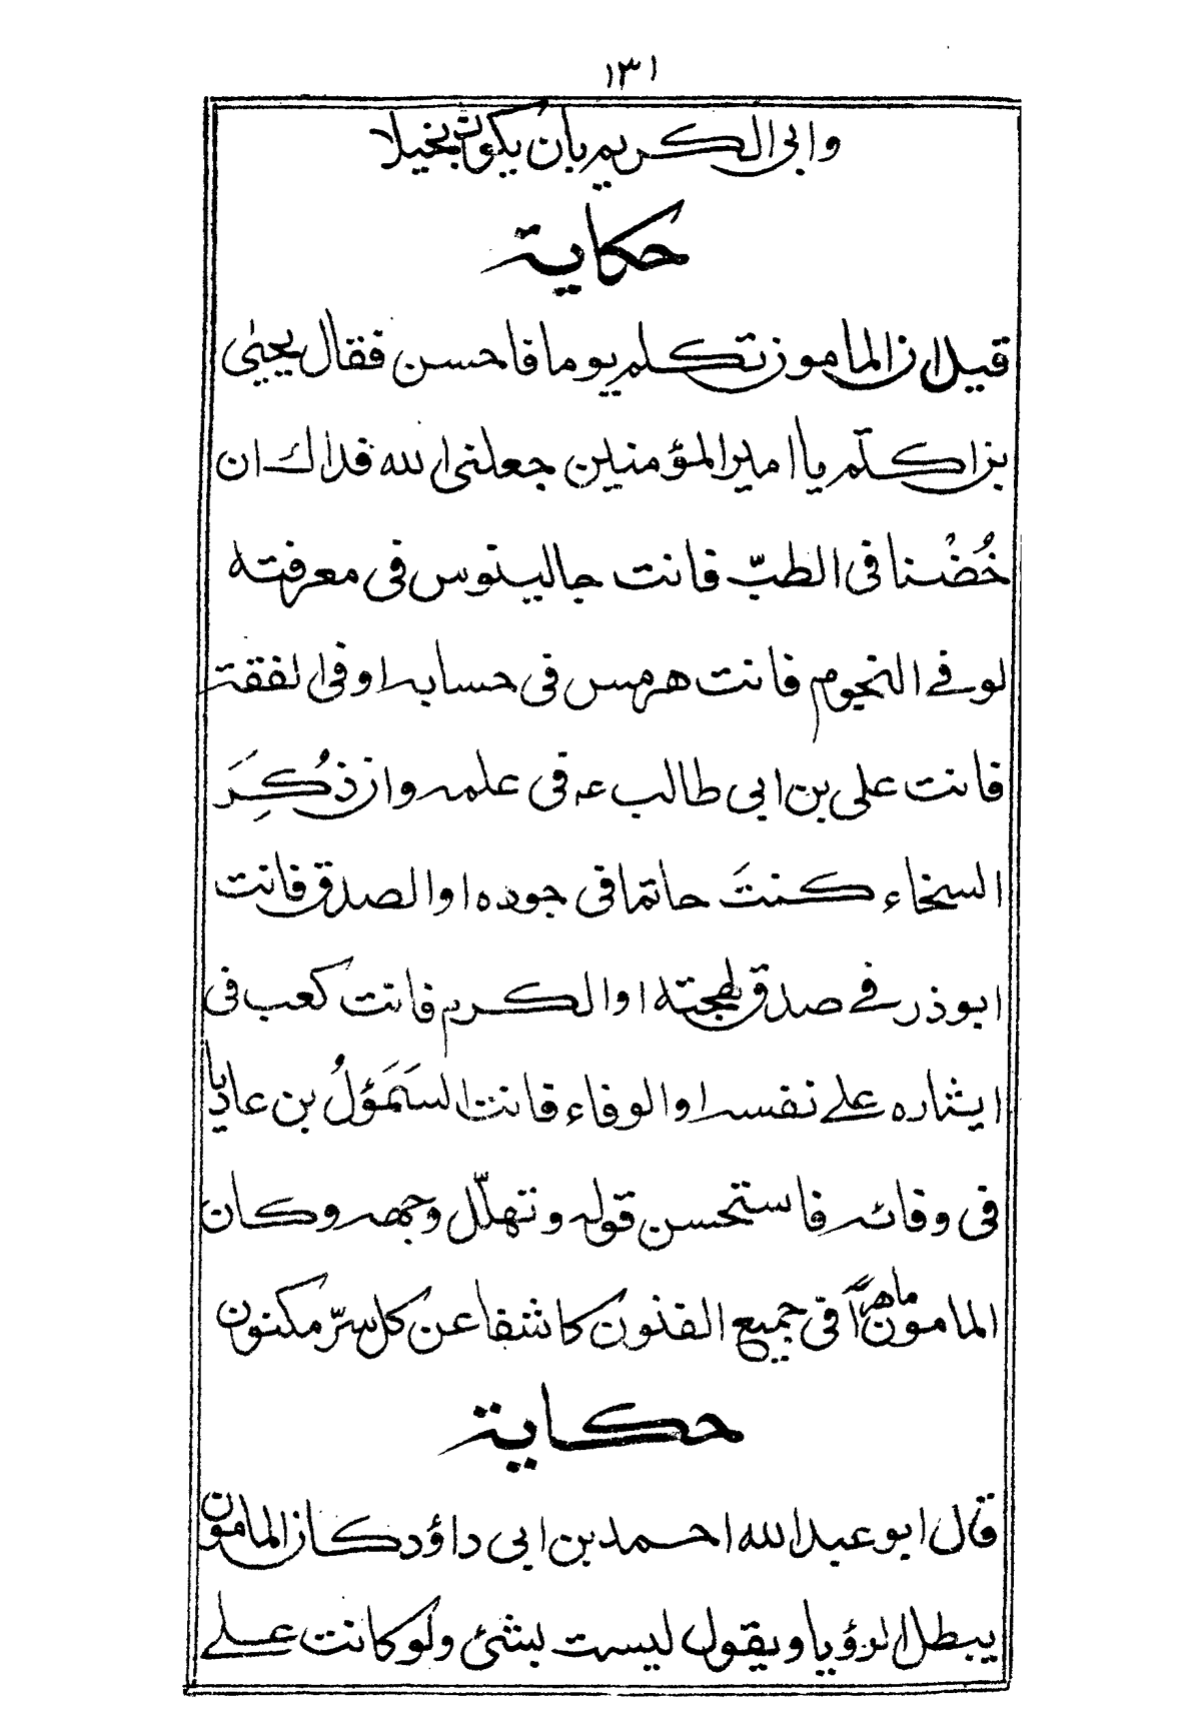 ١٣١
وابى الكريم بان يكون بخيلا
حكاية
قيل ان المامون تكلم يوما فاحسن فقال يحيٰى
بن اكثم يا امير المؤمنين جعلنى الله فداك ان
خُضْنا فى الطبّ فانت جالينوس فى معرفته
لو فے النجوم فانت هرمس فى حسابه او فى الفقة
فانت على بن ابى طالب عه فى علمه وان ذُكِرَ
السخاء كنتَ حاتما فى جوده او الصدق فانت
ابوذر فے صدق لهجته او الكرم فانت كعب فى
ايثاره علے نفسه او الوفاء فانت السَمَؤلُ بن عاديا
فى وفائه فاستحسن قوله وتهلّل وجهه وكان
المامون ماهراً فى جميع الفنون كاشفا عن كل سرّ مكنون
حكاية
قال ابو عبد الله احمد بن ابى داؤد كان المامون
يبطل الرؤيا ويقول ليست بشئ ولو كانت علے